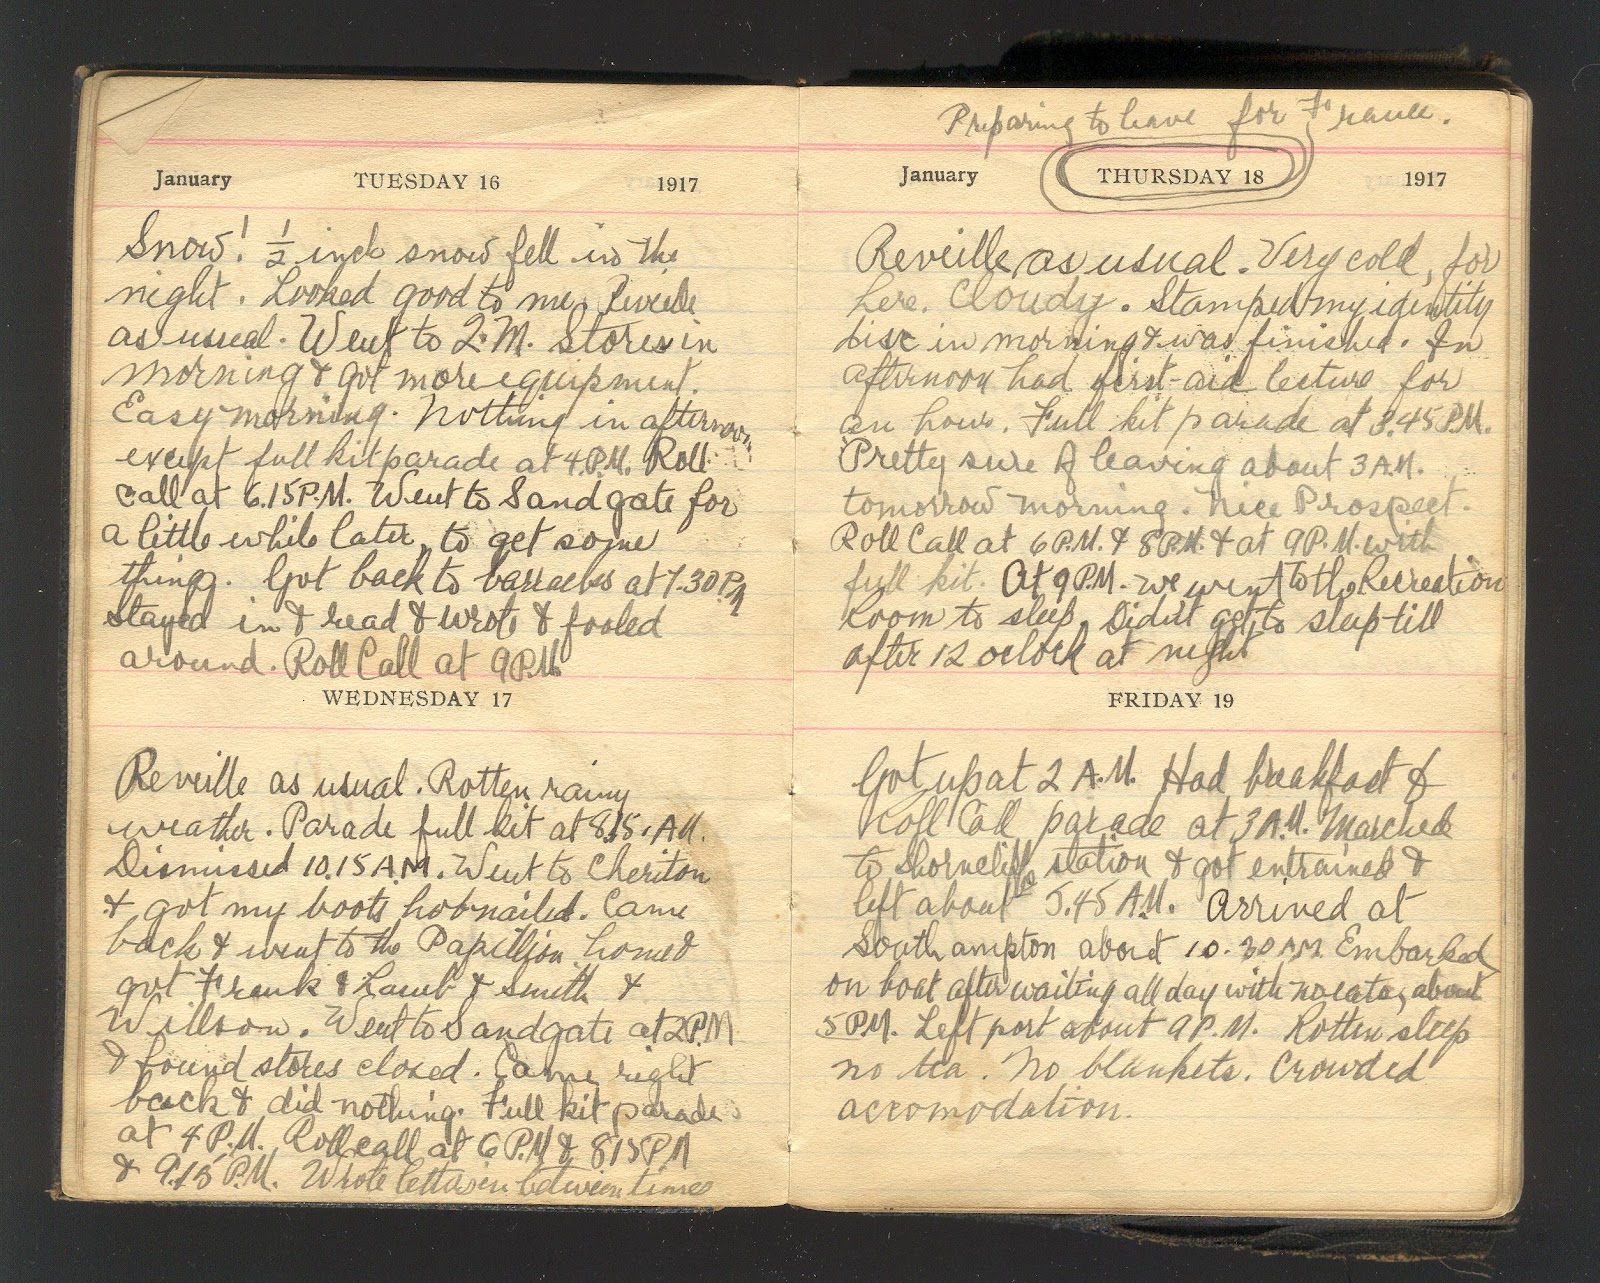 January TUESDAY 16 1917
Snow! 1/2 inch snow fell in the
night. Looked good to me. Reveille
as usual. Went to Q.M. Stores in
morning & got more equipment.
Easy morning. Nothing in afternoon
except full kit parade at 4 P.M. Roll
call at 6.15 P.M. Went to Sandgate for
a little while later, to get some
thing. Got back to barracks at 7.30 PM
Stayed in & read & wrote & fooled
around. Roll Call at 9 P.M.
WEDNESDAY 17
Reveille as usual. Rotten rainy
weather. Parade full kit at 8.15. A.M.
Dismissed 10.15 A.M. Went to Cheriton
& got my boots hobnailed. Came
back & went to the Papillion home &
got Frank & Lamb & Smith &
Willson. Went to Sandgate at 2 P.M
& found stores closed. Came right
back & did nothing. Full kit parade
at 4 P.M. Roll call at 6 P.M & 815 P.M
& 9.15 P.M. Wrote letters in between times
Preparing to leave for France.
January THURSDAY 18 1917
Reveille as usual. Very cold, for
here. Cloudy. Stamped my identity
disc in morning & was finished. In
afternoon had first-aid lecture for
an hour. Full kit parade at 3.45 P.M.
Pretty sure of leaving about 3 A.M.
tomorrow morning. Nice Prospect.
Roll Call at 6 P.M. & 8 P.M. & at 9 P.M. with
full kit. At 9 P.M. we went to the Recreation
Room to sleep. Didnt get to sleep till
after 12 oclock at night
FRIDAY 19
Got up at 2 A.M. Had breakfast &
Roll Call parade at 3 A.M. Marched
to Shorncliffe station & got entrained &
left about 5.45 A.M. Arrived at
Southampton about 10.30 A.M. Embarked
on boat after waiting all day with no eats, about
5 P.M. Left port about 9 P.M. Rotten sleep
no tea. No blankets. Crowded
accomodation.